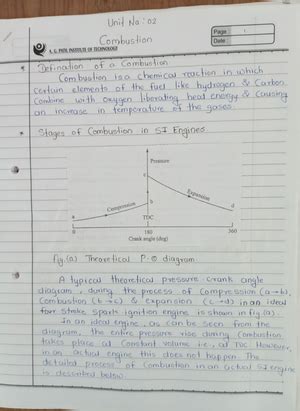 Unit No: 02
Combustion
Page: 1
Date:
A. G. PATIL INSTITUTE OF TECHNOLOGY
* Definition of a Combustion
Combustion is a chemical reaction in which
certain elements of the fuel like hydrogen & Carbon
Combine with oxygen liberating heat energy & Causing
an increase in temperature of the gases.
* Stages of Combustion in SI Engines
Pressure
c
Expansion
Compression
b
d
a
TDC
0
180
360
Crank angle (deg)
fig.(a) Theoretical P-θ diagram.
A typical theoretical pressure-crank angle
diagram, during the process of Compression (a→b),
Combustion (b→c) & expansion (c→d) in an ideal
four stroke spark ignition engine is shown in fig.(a).
In an ideal engine, as can be seen from the
diagram, the entire pressure rise during Combustion
takes place at Constant volume i.e., at TDC However,
in an actual engine this does not happen. The
detailed process of Combustion in an actual SI engine
is described below.